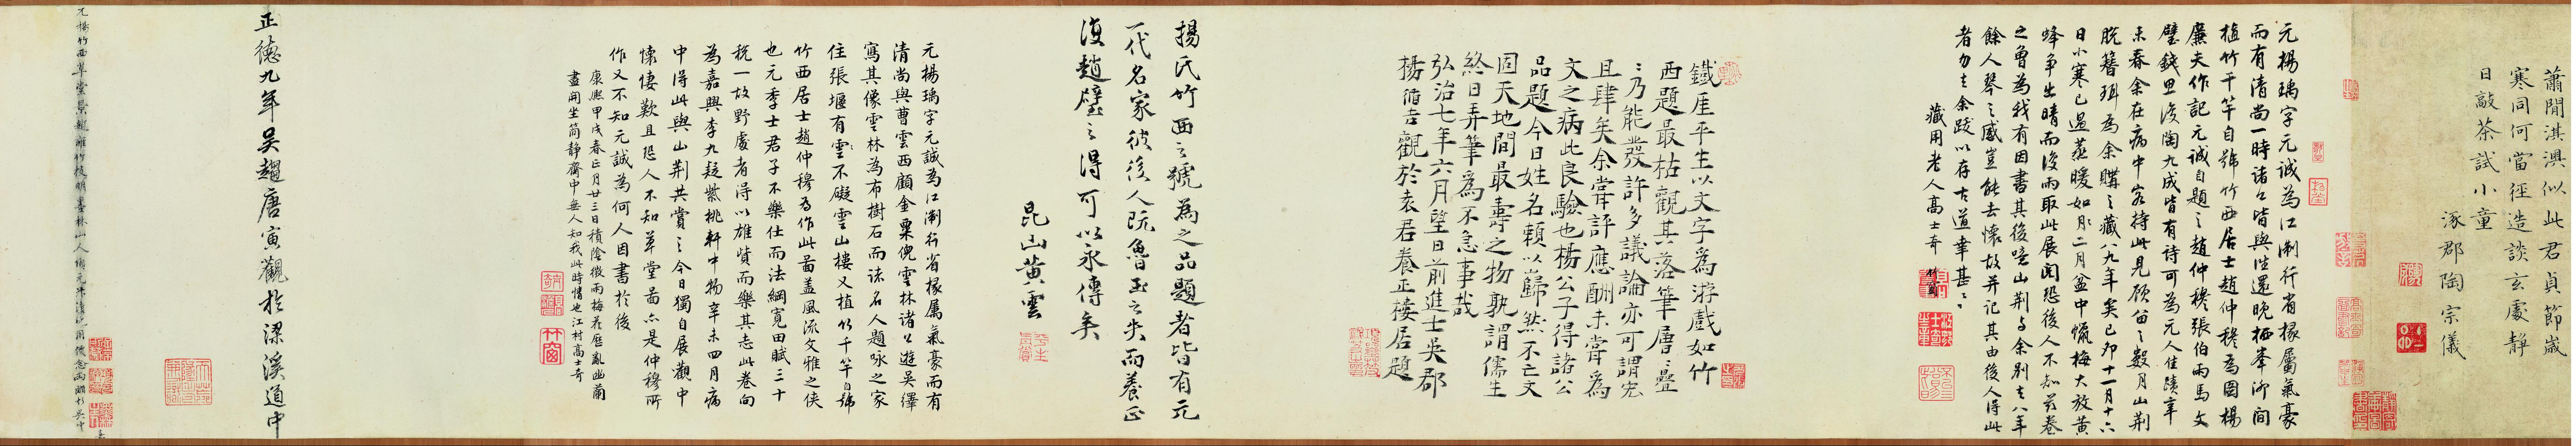 蕭閒淇澳似此君貞節歲
寒同何當徑造談玄處靜
日敲茶試小童
涿郡陶宗儀
元楊瑀字元誠為江淛行省掾屬氣豪
而有清尚一時諸公皆與往還晚栖峯泖間
植竹千竿自號竹西居士趙仲穆為圖楊
廉夫作記元誠自題之趙仲穆張伯雨馬文
璧錢思復陶九成皆有詩可為元人佳蹟辛
未春余在病中客持此見顧留之數月山荆
脫簪珥為余購之藏八九年矣己卯十一月十六
日小寒已過蒸暖如二月盆中蠟梅大放黃
蜂爭出晴而後雨取此展閱恐後人不知茲卷
之曾為我有因書其後噫山荆与余別去八年
餘人琴之感豈能去懷故并記其由後人得此
者勿去余跋以存古道幸甚幸甚
藏用老人高士奇
鐵厓平生以文字為游戲如竹
西題最枯觀其落筆層層疊
疊乃能發許多議論亦可謂宏
且肆矣余嘗評應酬未嘗為
文之病此良驗也楊公子得諸公
品題今日姓名賴以巋然不亡文
固天地間最壽之物孰謂儒生
終日弄筆為不急事哉
弘治七年六月望日前進士吳郡
楊循吉觀於袁君養正樓居題
楊氏竹西之號為之品題者皆有元
一代名家彼後人既魯玉之失而養正
復趙璧之得可以永傳矣
昆山黃雲
元楊瑀字元誠為江淛行省掾屬氣豪而有
清尚與曹雲西顧金粟倪雲林諸公遊吳繹
寫其像雲林為布樹石而諸名人題咏之家
住張堰有雲不礙雲山樓又植竹千竿自號
竹西居士趙仲穆為作此圖蓋風流文雅之俠
也元季士君子不樂仕而法網寬田賦三十
稅一故野處者得以雄貲而樂其志此卷向
為嘉興李九疑紫桃軒中物辛未四月病
中得此與山荆共賞之今日獨自展觀中
懷悽歎且恐人不知草堂圖亦是仲穆所
作又不知元誠為何人因書於後
康熙甲戌春正月廿三日積陰微雨梅花歷亂幽蘭
晝開坐簡靜齋中無人知我此時情也江村高士奇
正德九年吳趨唐寅觀於梁溪道中
元楊竹西草堂景趙雍竹枝明墨林山人項元汴清